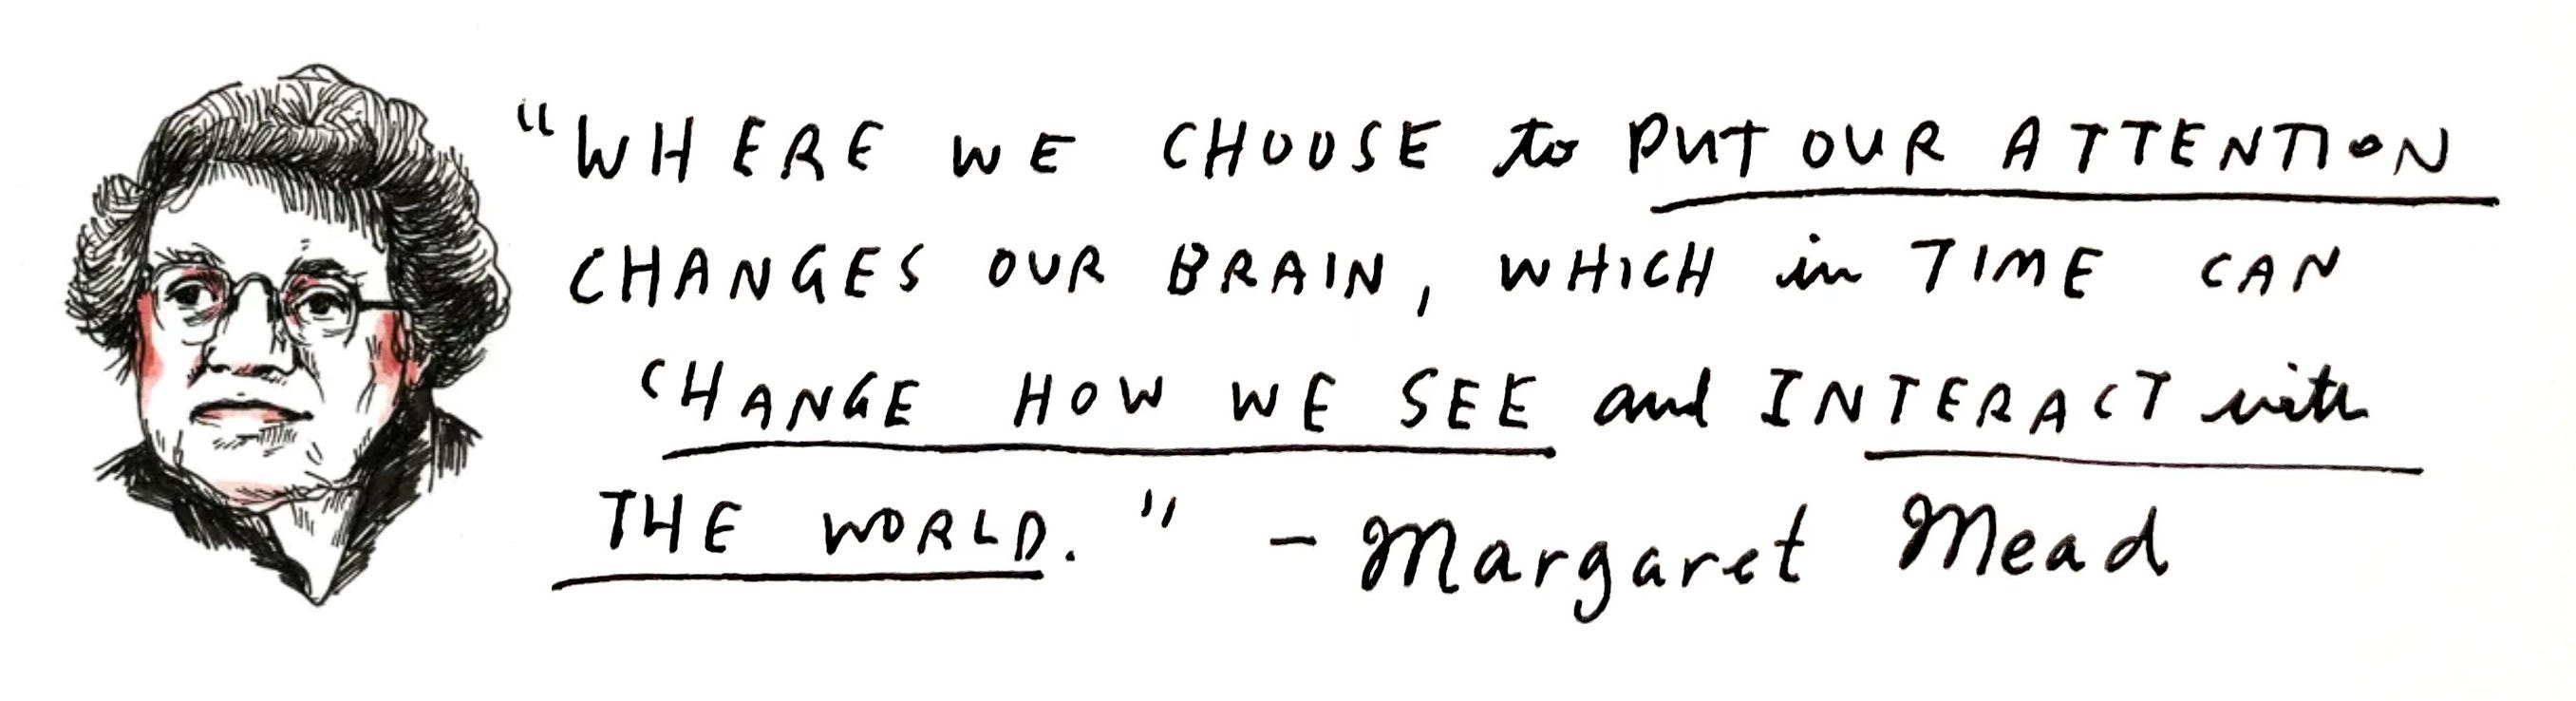 "WHERE WE CHOOSE to PUT OUR ATTENTION
CHANGES OUR BRAIN, WHICH in TIME CAN
CHANGE HOW WE SEE and INTERACT with
THE WORLD." - Margaret Mead